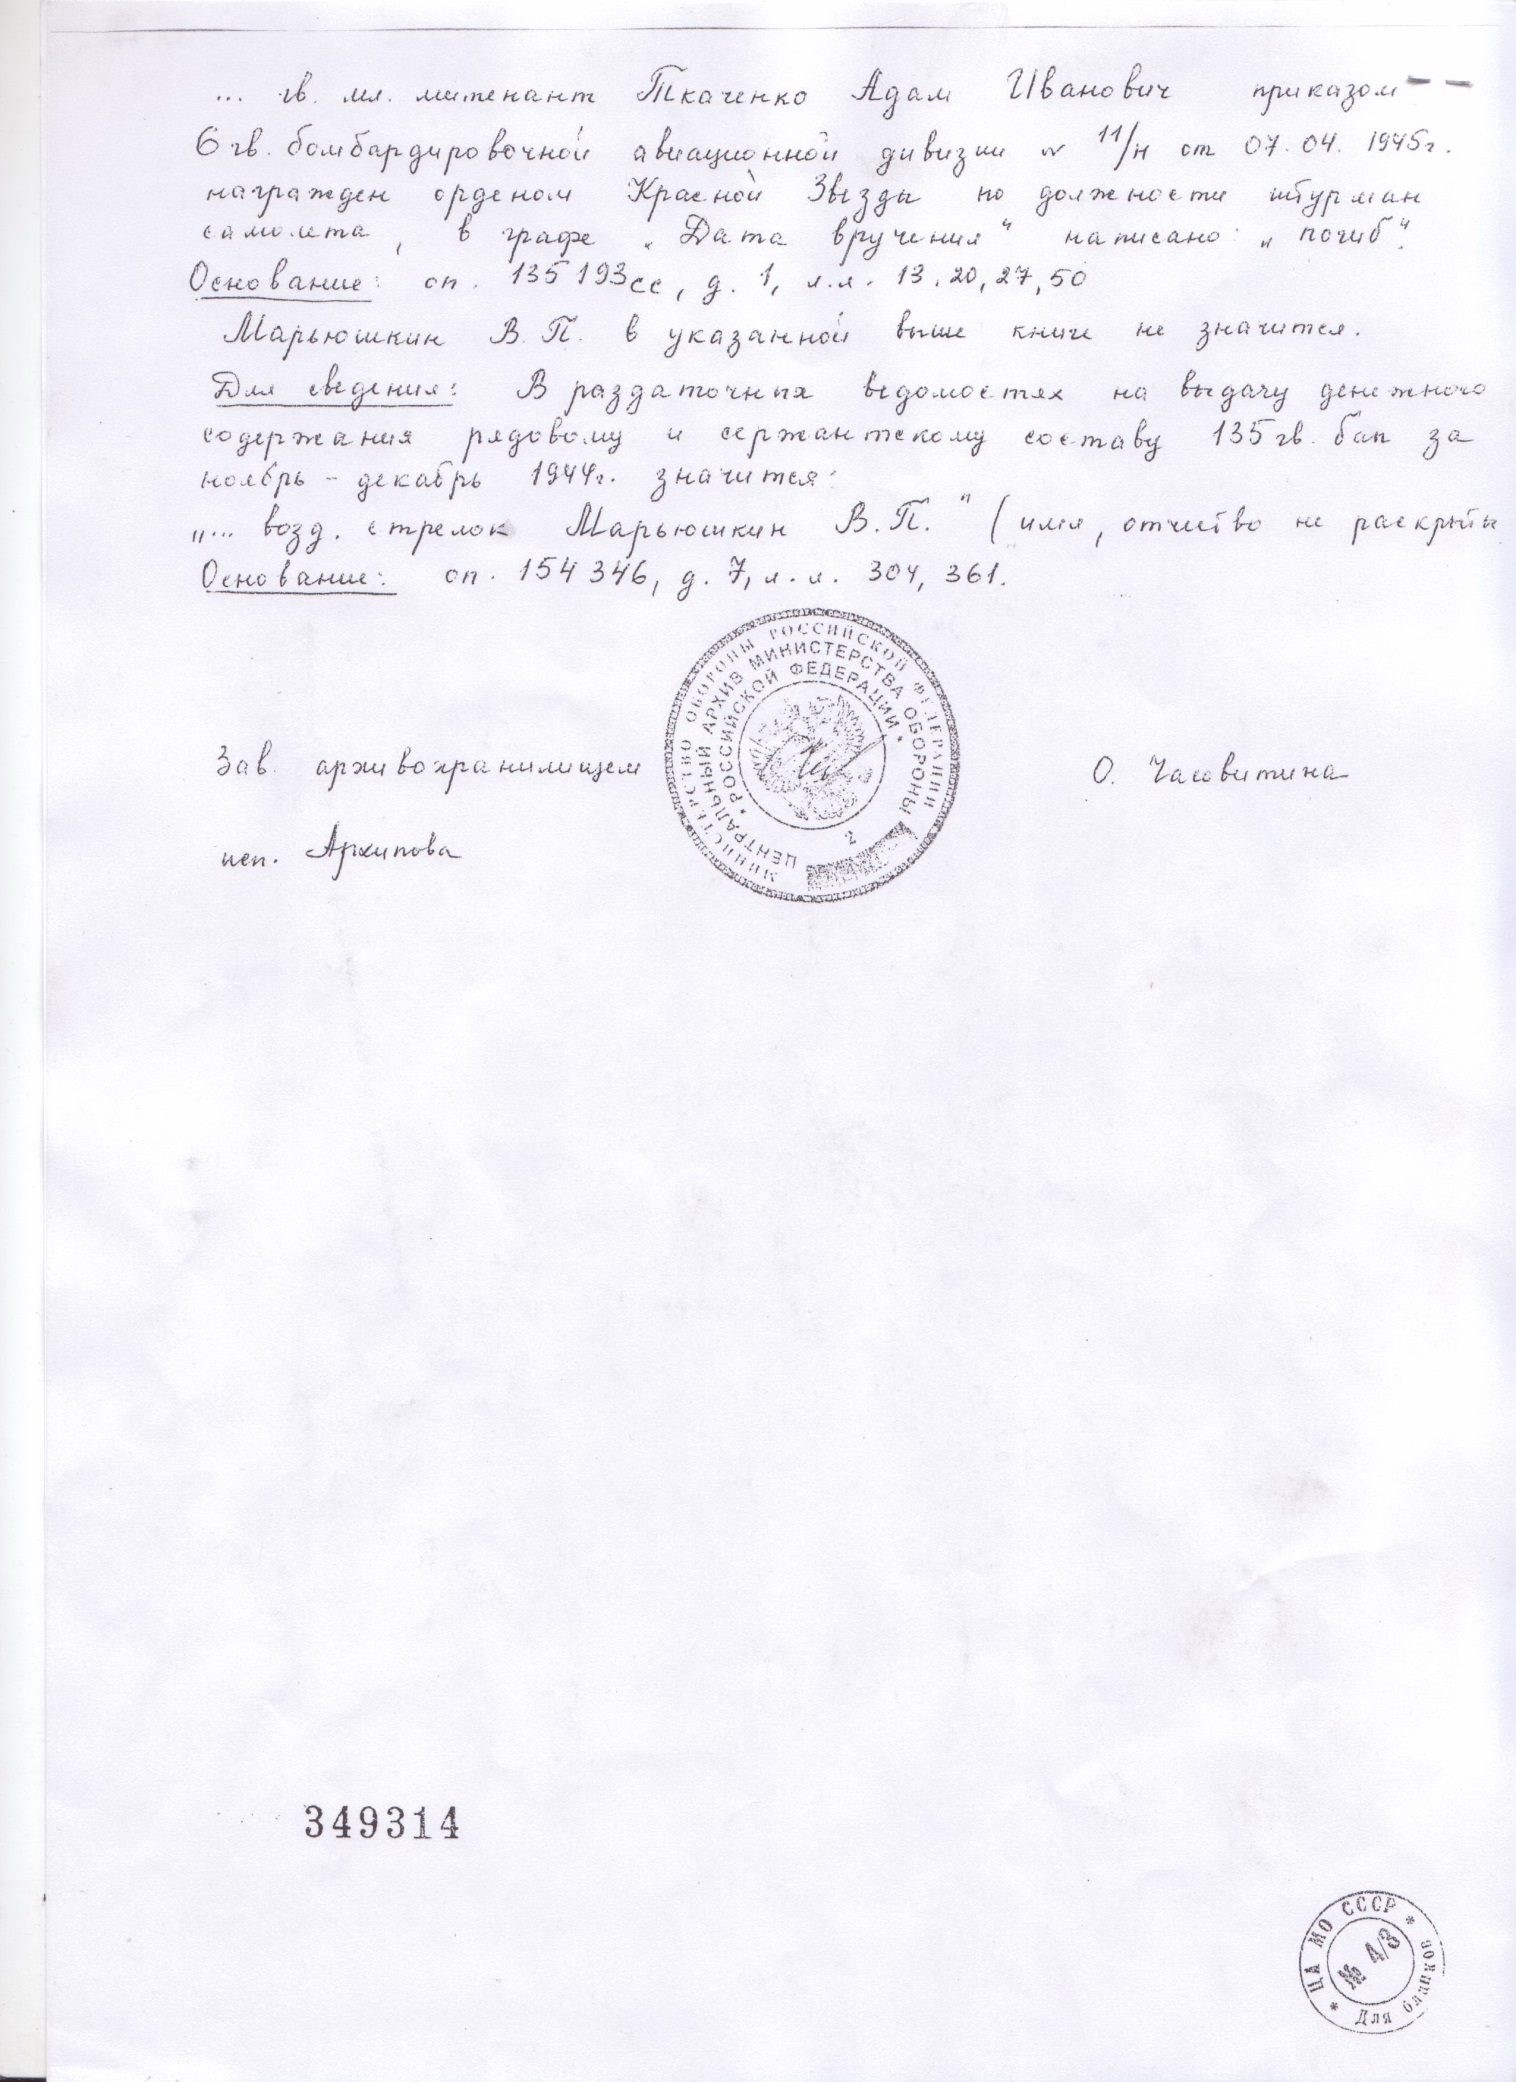 ... гв. мл. лейтенант Ткаченко Адам Иванович приказом
6 гв. бомбардировочной авиационной дивизии № 11/н от 07.04.1945г.
награжден орденом Красной Звезды по должности штурман
самолета, в графе „Дата вручения“ написано: „погиб“.
Основание: оп. 135193сс, д. 1, л.л. 13, 20, 27, 50
Марьюшкин В.П. в указанной выше книге не значится.
Для сведения: В раздаточных ведомостях на выдачу денежного
содержания рядовому и сержантскому составу 135 гв. бап за
ноябрь - декабрь 1944г. значится:
„... возд. стрелок Марьюшкин В.П.“ (имя, отчество не раскрыты
Основание: оп. 154346, д. 7, л.л. 304, 361.
МИНИСТЕРСТВО ОБОРОНЫ РОССИЙСКОЙ ФЕДЕРАЦИИ
ЦЕНТРАЛЬНЫЙ АРХИВ МИНИСТЕРСТВА ОБОРОНЫ
• РОССИЙСКОЙ ФЕДЕРАЦИИ •
2
Зав. архивохранилищем О. Часовитина
исп. Архипова
349314
* ЦА МО СССР *
№ 4/3
Для бланков